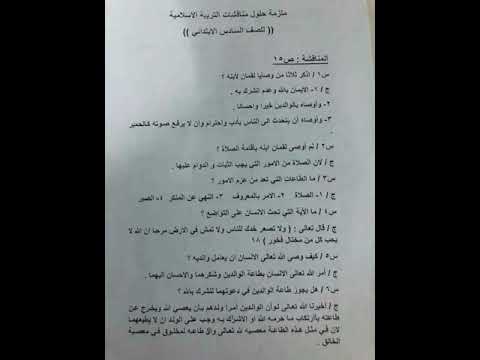 ملزمة حلول مناقشات التربية الاسلامية
(( للصف السادس الابتدائي ))
المناقشة : ص١٥
س١ / اذكر ثلاثا من وصايا لقمان لابنه ؟
ج / ١- الايمان بالله وعدم الشرك به .
٢- وأوصاه بالوالدين خيرا واحسانا .
٣- وأوصاه ان يتحدث الى الناس بأدب واحترام وان لا يرفع صوته كالحمير
س٢ / لم أوصى لقمان ابنه بأقامة الصلاة ؟
ج / لان الصلاة من الامور التي يجب الثبات و الدوام عليها .
س٣ / ما الطاعات التي تعد من عزم الامور ؟
ج / ١- الصلاة ٢- الامر بالمعروف ٣- النهي عن المنكر ٤- الصبر
س٤ / ما الآية التي تحث الانسان على التواضع ؟
ج / قال تعالى : ( ولا تصعر خدك للناس ولا تمش في الارض مرحا ان الله لا
يحب كل من مختال فخور ) ١٨
س٥ / كيف وصى الله تعالى الانسان ان يعامل والديه ؟
ج / أمر الله تعالى الانسان بطاعة الوالدين وشكرهما والاحسان اليهما .
س٦ / هل يجوز طاعة الوالدين في دعوتهما للشرك بالله ؟
ج / أخبرنا الله تعالى لو أن الوالدين أمرا ولدهم بأن يعصي الله ويخرج عن
طاعته بأرتكاب ما حرمه الله او الاشراك به وجب على الولد ان لا يطيعهما
لان في مثل هذه الطاعة معصية لله تعالى ولا طاعة لمخلوق في معصية
الخالق .